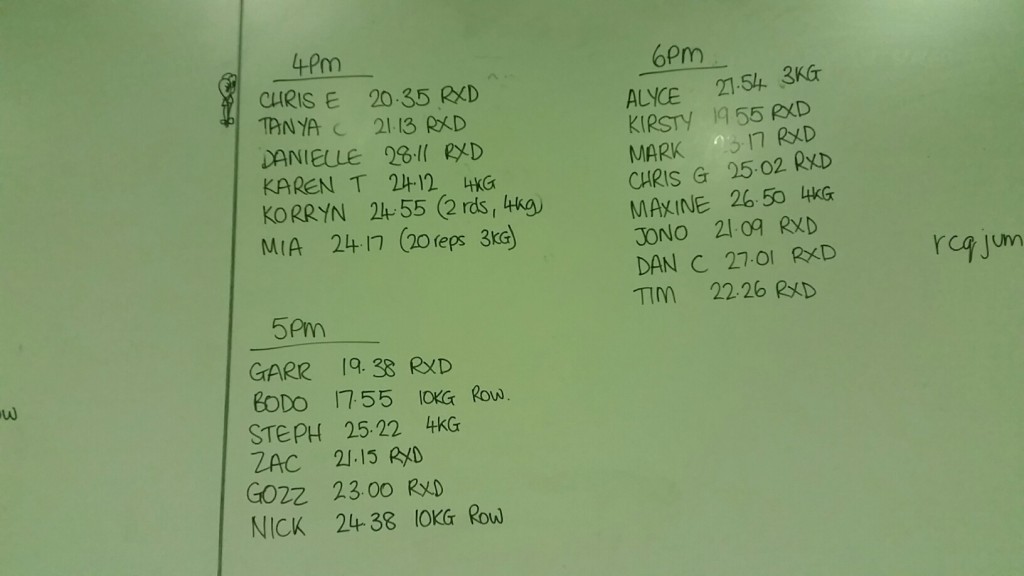 4Pm
CHRIS E 20.35 RXD
TANYA C 21.13 RXD
DANIELLE 28.11 RXD
KAREN T 24.12 4KG
KORRYN 24.55 (2 rds, 4kg)
MIA 24.17 (20 reps 3KG)
5Pm
GARR 19.38 RXD
BODO 17.55 10KG ROW.
STEPH 25.22 4KG
ZAC 21.15 RXD
GOZZ 23.00 RXD
NICK 24.38 10KG ROW
6Pm
ALYCE 27.54 3KG
KIRSTY 19 55 RXD
MARK RXD
CHRIS G 25.02 RXD
MAXINE 26.50 4KG
JONO 21.09 RXD
DAN C 27.01 RXD
TIM 22.26 RXD